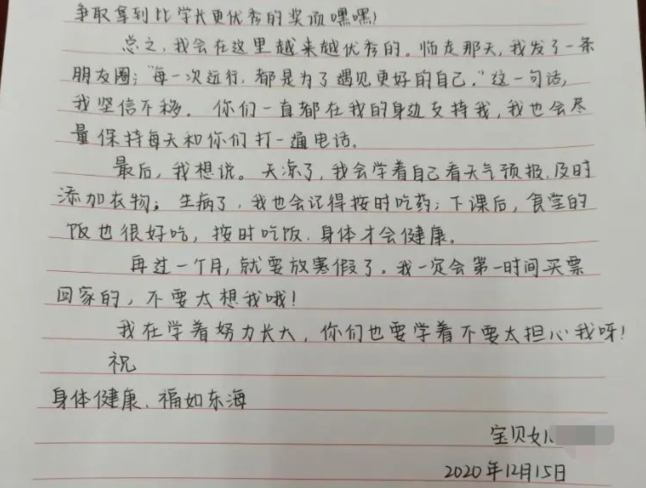 争取拿到比学长更优秀的奖项嘿嘿）
总之，我会在这里越来越优秀的。临走那天，我发了一条
朋友圈："每一次远行，都是为了遇见更好的自己。"这一句话，
我坚信不移。你们一直都在我的身边支持我，我也会尽
量保持每天和你们打一通电话。
最后，我想说。天凉了，我会学着自己看天气预报，及时
添加衣物；生病了，我也会记得按时吃药；下课后，食堂的
饭也很好吃，按时吃饭，身体才会健康。
再过一个月，就要放寒假了。我一定会第一时间买票
回家的，不要太想我哦！
我在学着努力长大，你们也要学着不要太担心我呀！
祝
身体健康、福如东海
宝贝女儿
2020年12月15日